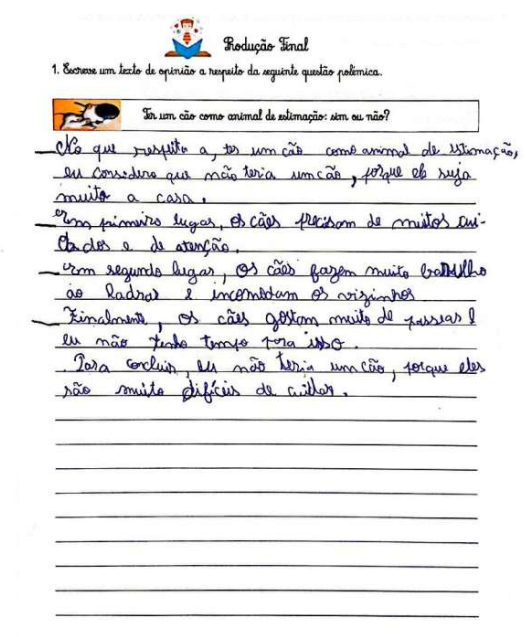 Produção Final
1. Escreve um texto de opinião a respeito da seguinte questão polémica.
Ter um cão como animal de estimação: sim ou não?
No que respeita a, ter um cão como animal de estimação,
eu considero que não teria um cão, porque ele suja
muito a casa.
Em primeiro lugar, os cães precisam de muitos cui-
dados e de atenção.
Em segundo lugar, os cães fazem muito barulho
ao ladrar e incomodam os vizinhos
Finalmente, os cães gostam muito de passear e
eu não tenho tempo para isso.
Para concluir, eu não teria um cão, porque eles
são muito difíceis de cuidar.